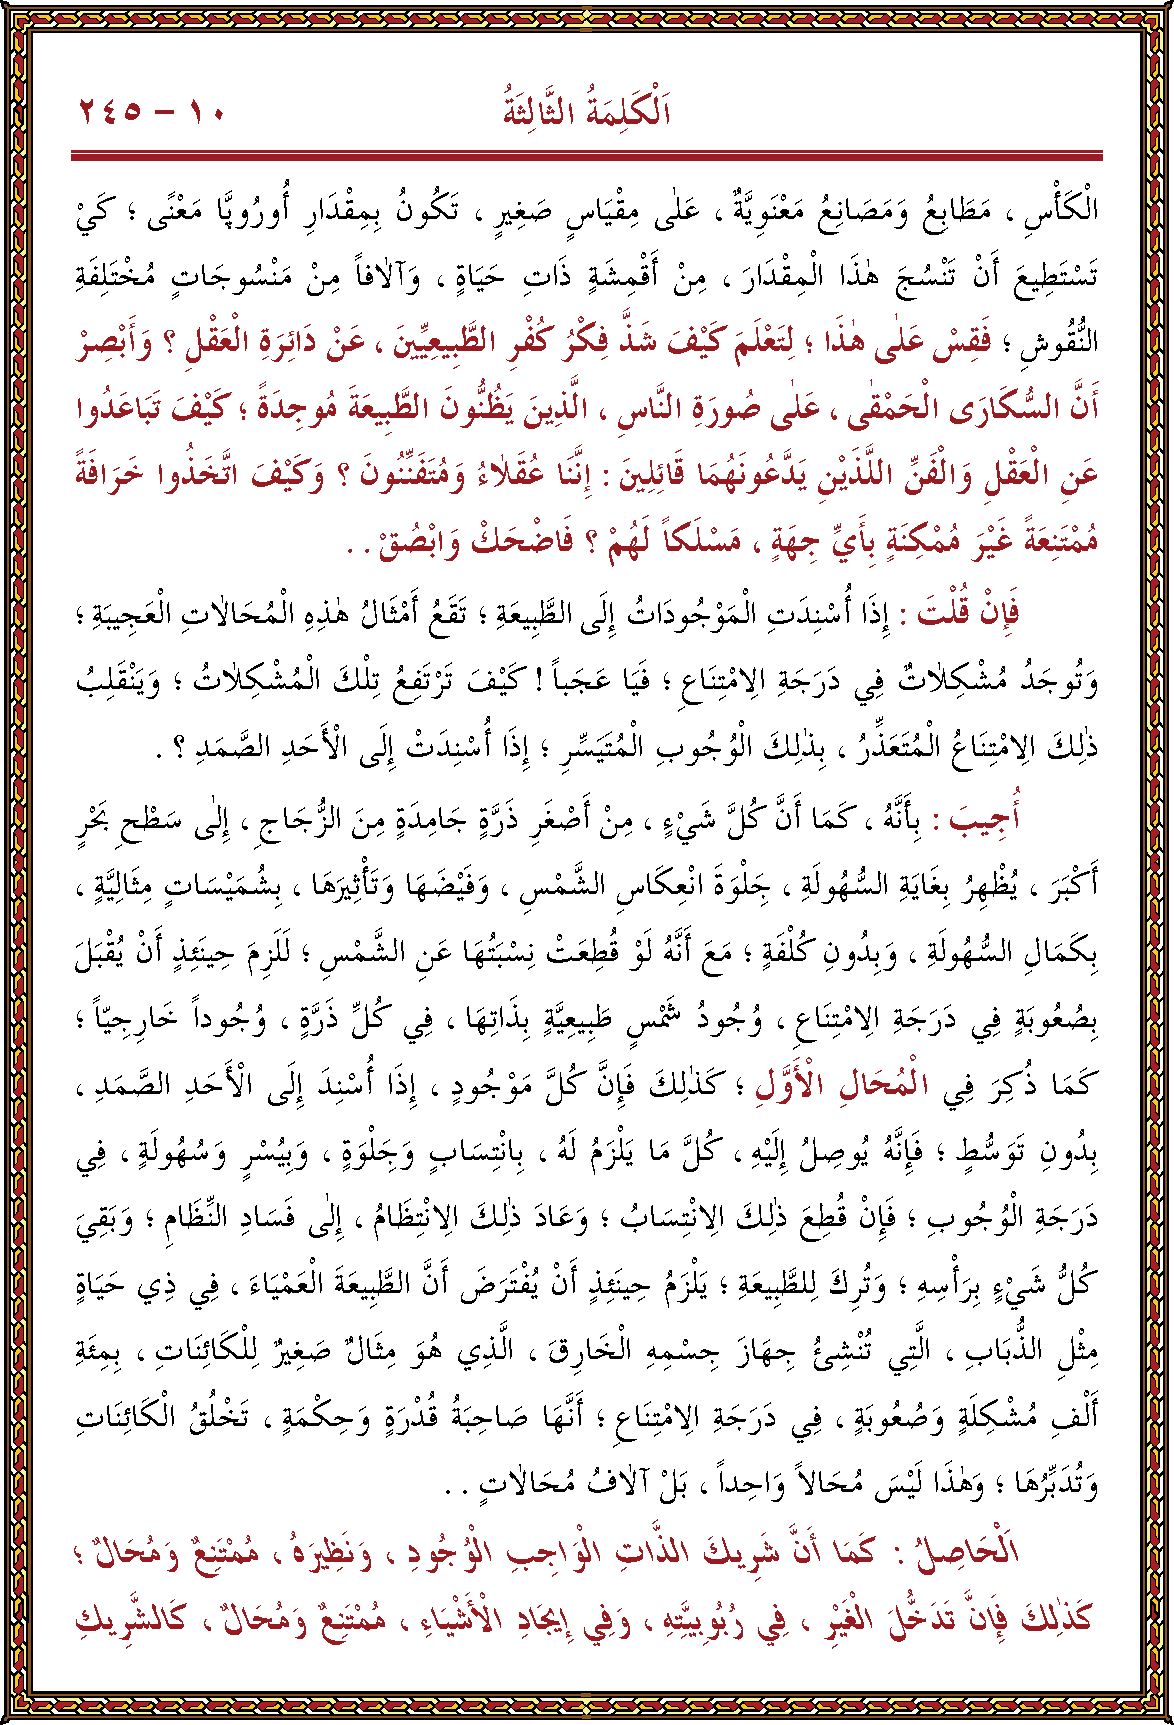 اَلْكَلِمَةُ الثَّالِثَةُ
١٠ – ٢٤٥
الْكَأْسِ ، مَطَابِعُ وَمَصَانِعُ مَعْنَوِيَّةٌ ، عَلٰى مِقْيَاسٍ صَغِيرٍ ، تَكُونُ بِمِقْدَارِ أُورُوپَّا مَعْنًى ؛ كَيْ
تَسْتَطِيعَ أَنْ تَنْسُجَ هٰذَا الْمِقْدَارَ ، مِنْ أَقْمِشَةٍ ذَاتِ حَيَاةٍ ، وَآلاٰفاً مِنْ مَنْسُوجَاتٍ مُخْتَلِفَةِ
النُّقُوشِ ؛ فَقِسْ عَلٰى هٰذَا ؛ لِتَعْلَمَ كَيْفَ شَذَّ فِكْرُ كُفْرِ الطَّبِيعِيِّينَ ، عَنْ دَائِرَةِ الْعَقْلِ ؟ وَأَبْصِرْ
أَنَّ السُّكَارَى الْحَمْقٰى ، عَلٰى صُورَةِ النَّاسِ ، الَّذِينَ يَظُنُّونَ الطَّبِيعَةَ مُوجِدَةً ؛ كَيْفَ تَبَاعَدُوا
عَنِ الْعَقْلِ وَالْفَنِّ اللَّذَيْنِ يَدَّعُونَهُمَا قَائِلِينَ : إِنَّنَا عُقَلاٰءُ وَمُتَفَنِّنُونَ ؟ وَكَيْفَ اتَّخَذُوا خَرَافَةً
مُمْتَنِعَةً غَيْرَ مُمْكِنَةٍ بِأَيِّ جِهَةٍ ، مَسْلَكاً لَهُمْ ؟ فَاضْحَكْ وَابْصُقْ . .
فَإِنْ قُلْتَ : إِذَا أُسْنِدَتِ الْمَوْجُودَاتُ إِلَى الطَّبِيعَةِ ؛ تَقَعُ أَمْثَالُ هٰذِهِ الْمُحَالاٰتِ الْعَجِيبَةِ ؛
وَتُوجَدُ مُشْكِلاٰتٌ فِي دَرَجَةِ الِامْتِنَاعِ ؛ فَيَا عَجَباً ! كَيْفَ تَرْتَفِعُ تِلْكَ الْمُشْكِلاٰتُ ؛ وَيَنْقَلِبُ
ذٰلِكَ الِامْتِنَاعُ الْمُتَعَذِّرُ ، بِذٰلِكَ الْوُجُوبِ الْمُتَيَسِّرِ ؛ إِذَا أُسْنِدَتْ إِلَى الْأَحَدِ الصَّمَدِ ؟ .
أُجِيبَ : بِأَنَّهُ ، كَمَا أَنَّ كُلَّ شَيْءٍ ، مِنْ أَصْغَرِ ذَرَّةٍ جَامِدَةٍ مِنَ الزُّجَاجِ ، إِلٰى سَطْحِ بَحْرٍ
أَكْبَرَ ، يُظْهِرُ بِغَايَةِ السُّهُولَةِ ، جَلْوَةَ انْعِكَاسِ الشَّمْسِ ، وَفَيْضَهَا وَتَأْثِيرَهَا ، بِشُمَيْسَاتٍ مِثَالِيَّةٍ ،
بِكَمَالِ السُّهُولَةِ ، وَبِدُونِ كُلْفَةٍ ؛ مَعَ أَنَّهُ لَوْ قُطِعَتْ نِسْبَتُهَا عَنِ الشَّمْسِ ؛ لَلَزِمَ حِينَئِذٍ أَنْ يُقْبَلَ
بِصُعُوبَةٍ فِي دَرَجَةِ الِامْتِنَاعِ ، وُجُودُ شَمْسٍ طَبِيعِيَّةٍ بِذَاتِهَا ، فِي كُلِّ ذَرَّةٍ ، وُجُوداً خَارِجِيّاً ؛
كَمَا ذُكِرَ فِي الْمُحَالِ الْأَوَّلِ ؛ كَذٰلِكَ فَإِنَّ كُلَّ مَوْجُودٍ ، إِذَا أُسْنِدَ إِلَى الْأَحَدِ الصَّمَدِ ،
بِدُونِ تَوَسُّطٍ ؛ فَإِنَّهُ يُوصِلُ إِلَيْهِ ، كُلَّ مَا يَلْزَمُ لَهُ ، بِانْتِسَابٍ وَجَلْوَةٍ ، وَبِيُسْرٍ وَسُهُولَةٍ ، فِي
دَرَجَةِ الْوُجُوبِ ؛ فَإِنْ قُطِعَ ذٰلِكَ الِانْتِسَابُ ؛ وَعَادَ ذٰلِكَ الِانْتِظَامُ ، إِلٰى فَسَادِ النِّظَامِ ؛ وَبَقِيَ
كُلُّ شَيْءٍ بِرَأْسِهِ ؛ وَتُرِكَ لِلطَّبِيعَةِ ؛ يَلْزَمُ حِينَئِذٍ أَنْ يُفْتَرَضَ أَنَّ الطَّبِيعَةَ الْعَمْيَاءَ ، فِي ذِي حَيَاةٍ
مِثْلِ الذُّبَابِ ، الَّتِي تُنْشِئُ جِهَازَ جِسْمِهِ الْخَارِقَ ، الَّذِي هُوَ مِثَالٌ صَغِيرٌ لِلْكَائِنَاتِ ، بِمِئَةِ
أَلْفِ مُشْكِلَةٍ وَصُعُوبَةٍ ، فِي دَرَجَةِ الِامْتِنَاعِ ؛ أَنَّهَا صَاحِبَةُ قُدْرَةٍ وَحِكْمَةٍ ، تَخْلُقُ الْكَائِنَاتِ
وَتُدَبِّرُهَا ؛ وَهٰذَا لَيْسَ مُحَالاً وَاحِداً ، بَلْ آلاٰفُ مُحَالاٰتٍ . .
اَلْحَاصِلُ : كَمَا أَنَّ شَرِيكَ الذَّاتِ الْوَاجِبِ الْوُجُودِ ، وَنَظِيرَهُ ، مُمْتَنِعٌ وَمُحَالٌ ؛
كَذٰلِكَ فَإِنَّ تَدَخُّلَ الْغَيْرِ ، فِي رُبُوبِيَّتِهِ ، وَفِي إِيجَادِ الْأَشْيَاءِ ، مُمْتَنِعٌ وَمُحَالٌ ، كَالشَّرِيكِ